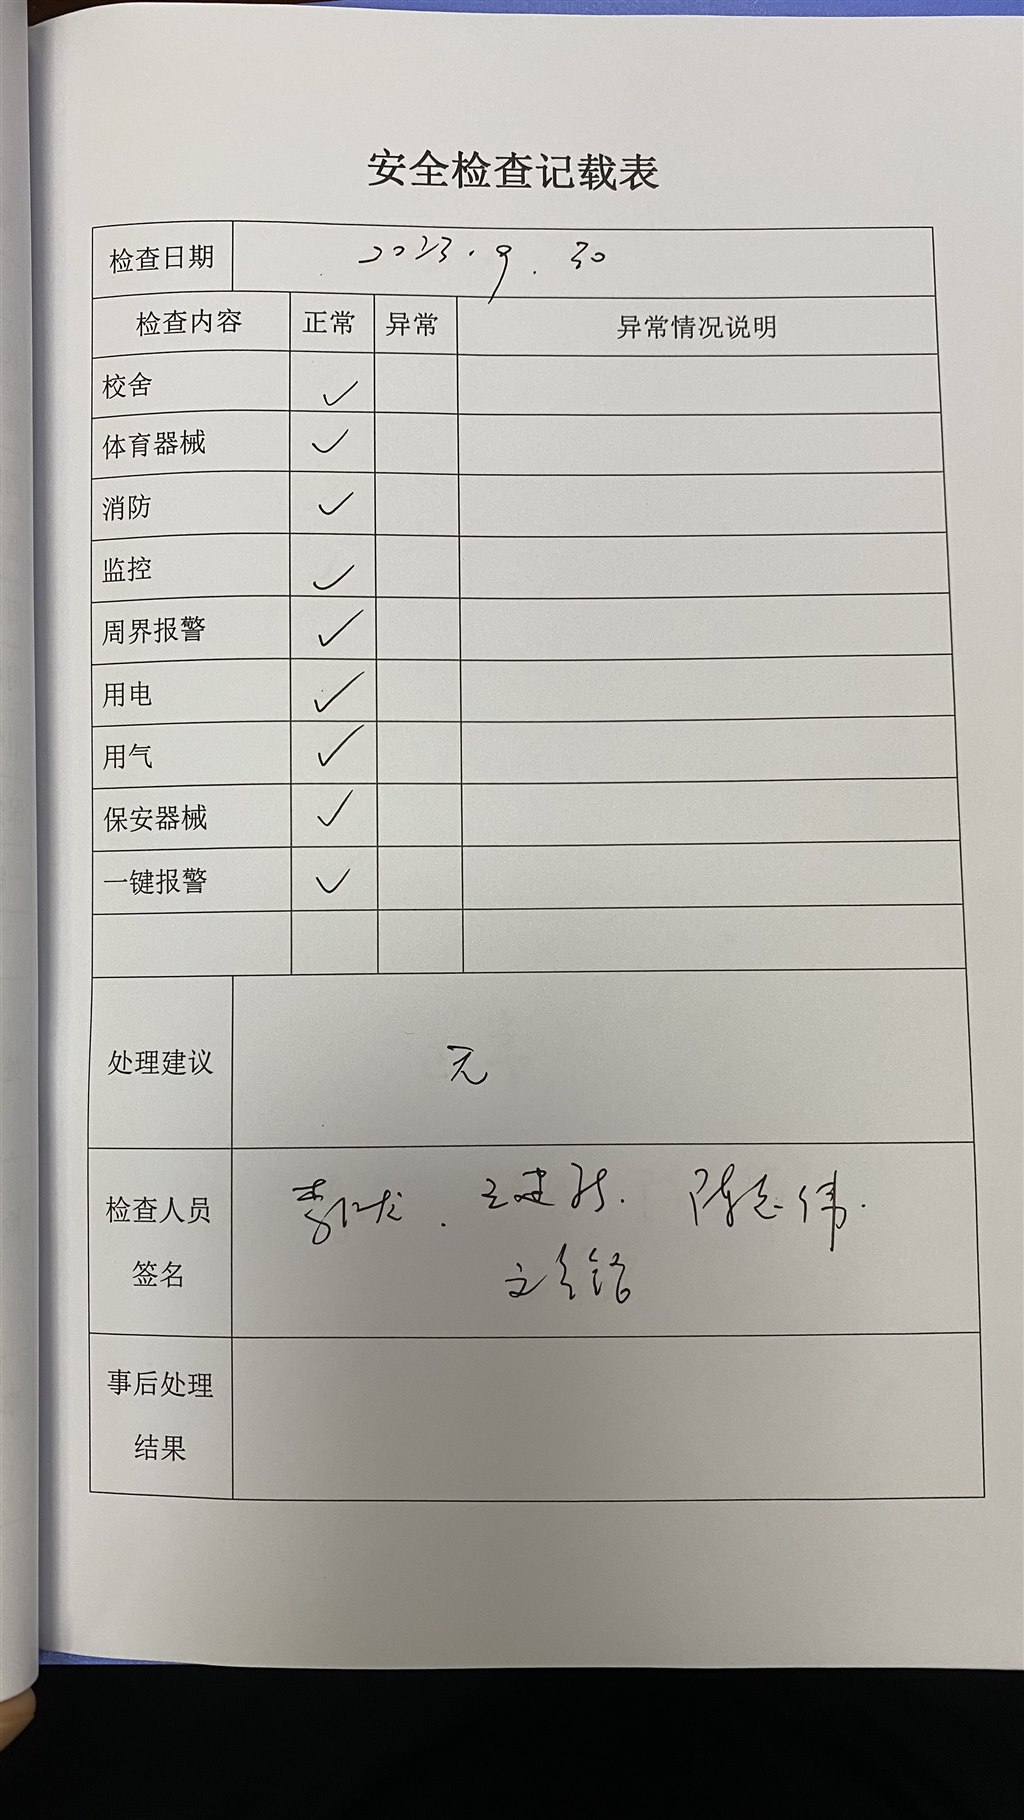 安全检查记载表
检查日期 2023.9.30
检查内容 正常 异常 异常情况说明
校舍 ✓
体育器械 ✓
消防 ✓
监控 ✓
周界报警 ✓
用电 ✓
用气 ✓
保安器械 ✓
一键报警 ✓
处理建议 无
检查人员 陈志伟.
签名
事后处理
结果